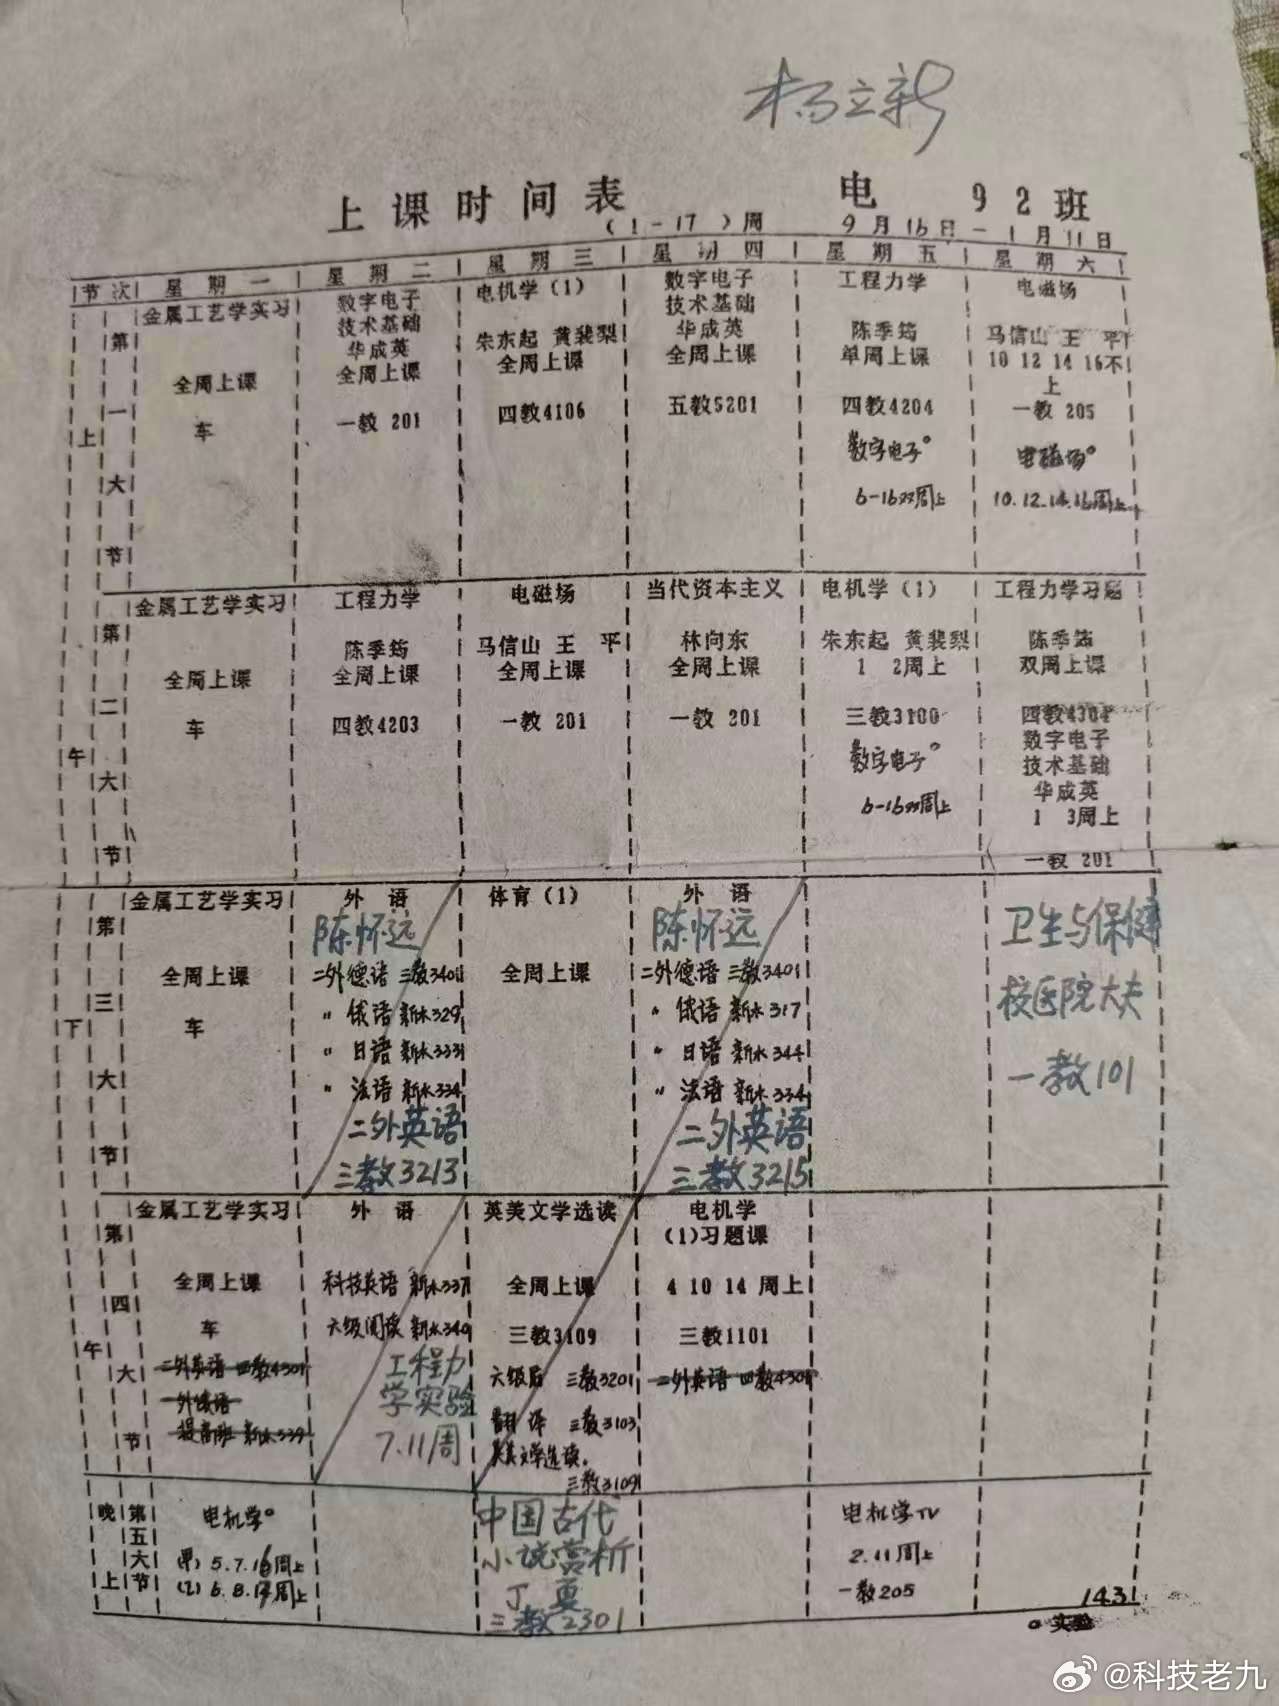 杨立新
上课时间表 电 92班
(1-17)周 9月16日-1月11日
节次 星期一 星期二 星期三 星期四 星期五 星期六
上午
第一大节
金属工艺学实习
全周上课
车
数字电子
技术基础
华成英
全周上课
一教 201
电机学(1)
朱东起 黄裴梨
全周上课
四教4106
数字电子
技术基础
华成英
全周上课
五教5201
工程力学
陈季筠
单周上课
四教4204
数字电子°
6-16双周上
电磁场
马信山 王 平
10 12 14 16不
上
一教 205
电磁场°
10.12.14.16周上
第二大节
金属工艺学实习
全周上课
车
工程力学
陈季筠
全周上课
四教4203
电磁场
马信山 王 平
全周上课
一教 201
当代资本主义
林向东
全周上课
一教 201
电机学(1)
朱东起 黄裴梨
1 2周上
三教3100
数字电子°
6-16双周上
工程力学习题
陈季筠
双周上课
四教4304
数字电子
技术基础
华成英
1 3周上
一教 201
下午
第三大节
金属工艺学实习
全周上课
车
外 语
陈怀远
二外德语 三教3401
〃 俄语 新水329
〃 日语 新水333
〃 法语 新水334
二外英语
三教3213
体育(1)
全周上课
外 语
陈怀远
二外德语 三教3401
〃 俄语 新水317
〃 日语 新水344
〃 法语 新水334
二外英语
三教3215
卫生与保健
校医院大夫
一教101
第四大节
金属工艺学实习
全周上课
车
二外英语 四教4301
一外俄语
提高班 新水339
外 语
科技英语 新水337
六级阅读 新水340
工程力
学实验
7.11周
英美文学选读
全周上课
三教3109
六级后 三教3201
翻译 三教3103
英美文学选读.
三教3109
电机学
(1)习题课
4 10 14 周上
三教1101
二外英语 四教4301
晚上
第五大节
电机学°
(甲) 5.7.16周上
(乙) 6.8.17周上
中国古代
小说赏析
丁夏
三教2301
电机学TV
2.11周上
一教205
1431
° 实验
@科技老九